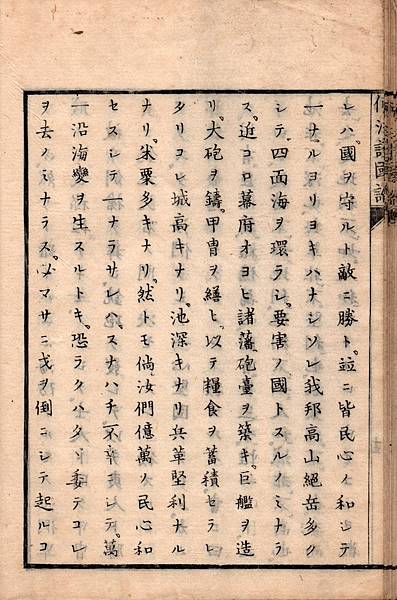 レハ。國ヲ守ルト敵ニ勝ト。竝ニ皆民心ノ和シテ
一ナルヨリヨキハナシソレ我邦高山絕岳多ク
シテ四面海ヲ環ラシ。要害ノ國トスルノミナラ
ス。近コロ幕府オヨヒ諸藩。砲臺ヲ築キ。巨艦ヲ造
リ。大砲ヲ鑄。甲冑ヲ繕ヒ。以テ糧食ヲ蓄積セラレ
タリコレ城高キナリ。池深キナリ兵革堅利ナル
ナリ。米粟多キナリ。然トモ倘汝們億萬ノ民心和
セスシテ一ナラサレハ。スナハチ不幸ニシテ。萬
一沿海變ヲ生スルトキ。恐ラクハタヾ委テコレ
ヲ去ノミナラス。必マサニ戈ヲ倒ニシテ起ルコ